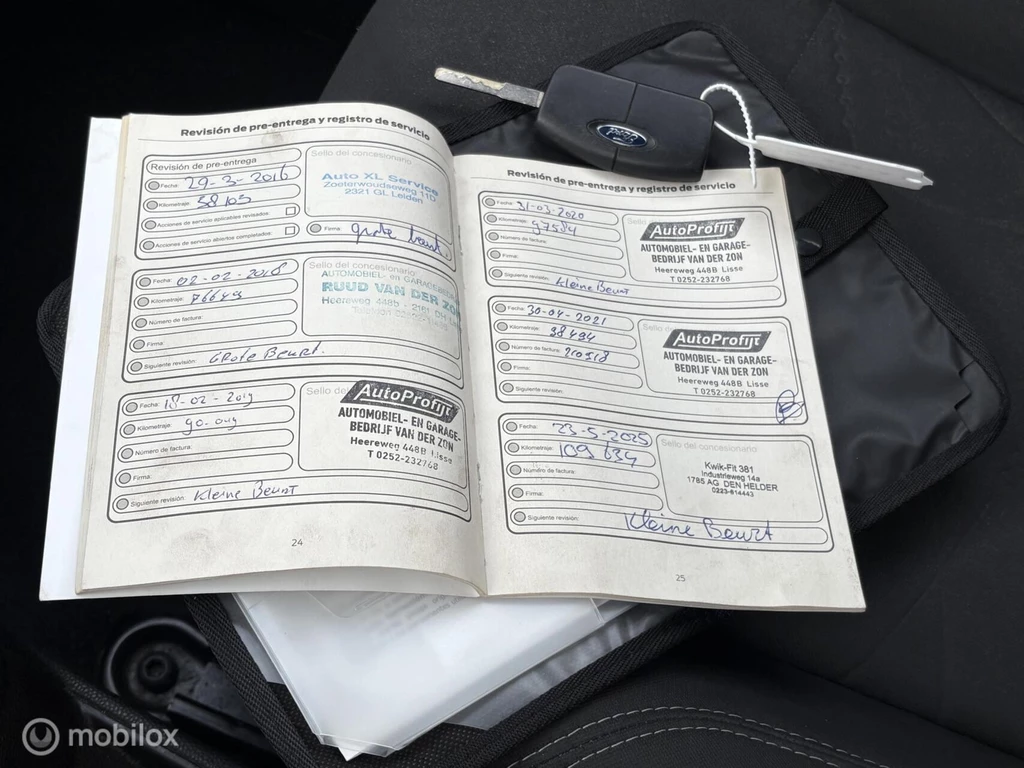 Revisión de pre-entrega y registro de servicio
Revisión de pre-entrega
Fecha: 29-3-2016
Kilometraje: 58105
Acciones de servicio aplicables revisadas:
Acciones de servicio abiertos completados:
Sello del concesionario
Auto XL Service
Zoeterwoudseweg 11D
2321 GL Leiden
Firma: grote beurt.
Fecha: 02-02-2018
Kilometraje: 76649
Número de factura:
Firma:
Siguiente revisión: Grote Beurt.
Sello del concesionario
AUTOMOBIEL- en GARAGEBEDRIJF
RUUD VAN DER ZON
Heereweg 448b - 2161
Fecha: 18-02-2019
Kilometraje:
Número de factura:
Firma:
Siguiente revisión: Kleine Beurt
Sello del
AutoProfijt
AUTOMOBIEL- EN GARAGE-
BEDRIJF VAN DER ZON
Heereweg 448B Lisse
T 0252-232768
24
Revisión de pre-entrega y registro de servicio
Fecha: 31-03-2020
Kilometraje: 97584
Número de factura:
Firma:
Siguiente revisión: Kleine Beurt
Sello
AutoProfijt
AUTOMOBIEL- EN GARAGE-
BEDRIJF VAN DER ZON
Heereweg 448B Lisse
T 0252-232768
Fecha: 30-04-2021
Kilometraje: 98494
Número de factura: 210518
Firma:
Siguiente revisión:
Sello del
AutoProfijt
AUTOMOBIEL- EN GARAGE-
BEDRIJF VAN DER ZON
Heereweg 448B Lisse
T 0252-232768
Fecha: 23-5-2025
Kilometraje: 109634
Número de factura:
Firma:
Siguiente revisión: Kleine Beurt
Sello del concesionario
Kwik-Fit 381
Industrieweg 14a
1785 AG DEN HELDER
0223-614443
25
Ford
mobilox